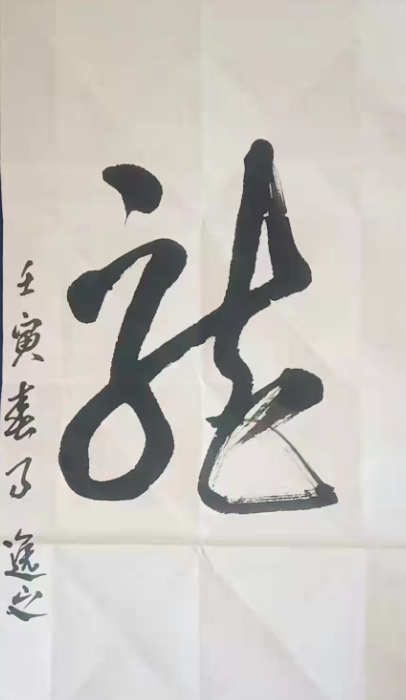 龍
壬寅春月 逸